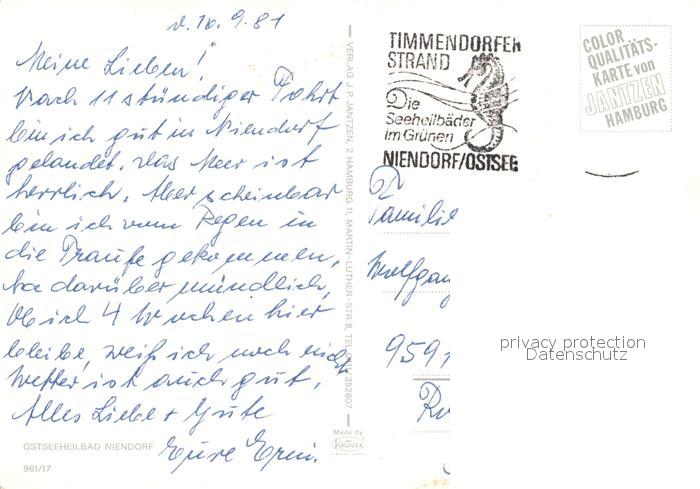 v. 10.9.81
Meine Lieben!
Nach 11stündiger Fahrt
bin ich gut in Niendorf
gelandet. Das Meer ist
herrlich. Aber scheinbar
bin ich vom Regen in
die Traufe gekommen,
na darüber mündlich,
Ob ich 4 Wochen hier
bleibe, weiß ich noch nicht
Wetter ist auch gut.
Alles Liebe + Gute
Eure
OSTSEEHEILBAD NIENDORF
961/17
VERLAG J.P. JANTZEN, 2 HAMBURG 11, MARTIN-LUTHER-STR. 8, TEL. 352807
Made by
KRÜGER
TIMMENDORFER
STRAND
Die
Seeheilbäder
im Grünen
NIENDORF/OSTSEE
COLOR
QUALITÄTS-
KARTE von
JANTZEN
HAMBURG
Familie
Wolfgang
959
privacy protection
Datenschutz